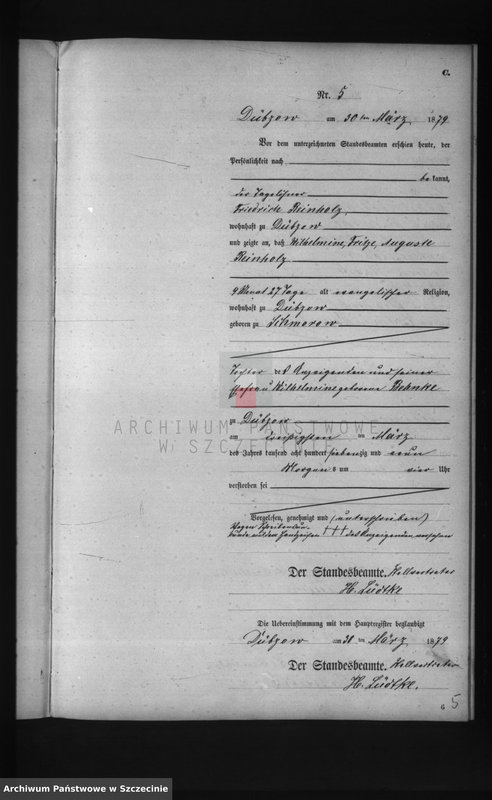 C.
Nr. 5
Dübzow am 30 ten März 1879
Vor dem unterzeichneten Standesbeamten erschien heute, der
Persönlichkeit nach
bekannt,
der Tagelöhner
Friedrich Reinholz,
wohnhaft zu Dübzow
und zeigte an, daß Wilhelmine, Auguste
Reinholz
9 Monat 27 Tage alt evangelischer Religion,
wohnhaft zu Dübzow
geboren zu Schmorow
Tochter des Anzeigenden und seiner
Ehefrau Wilhelmine geborene Behnke
zu Dübzow
am dreißigsten ten März
des Jahres tausend acht hundert siebenzig und neun
Morgens um vier Uhr
verstorben sei
Vorgelesen, genehmigt und (unterschrieben)
Wegen Schreibens
kunde mit dem Handzeichen +++ des Anzeigenden versehen
Der Standesbeamte. Stellvertreter
H. Lüdtke
Die Uebereinstimmung mit dem Hauptregister beglaubigt
Dübzow am 30 ten März 1879
Der Standesbeamte. Stellvertreter
H. Lüdtke.
6 5
ARCHIWUM PAŃSTWOWE
W SZCZECINIE
Archiwum Państwowe w Szczecinie